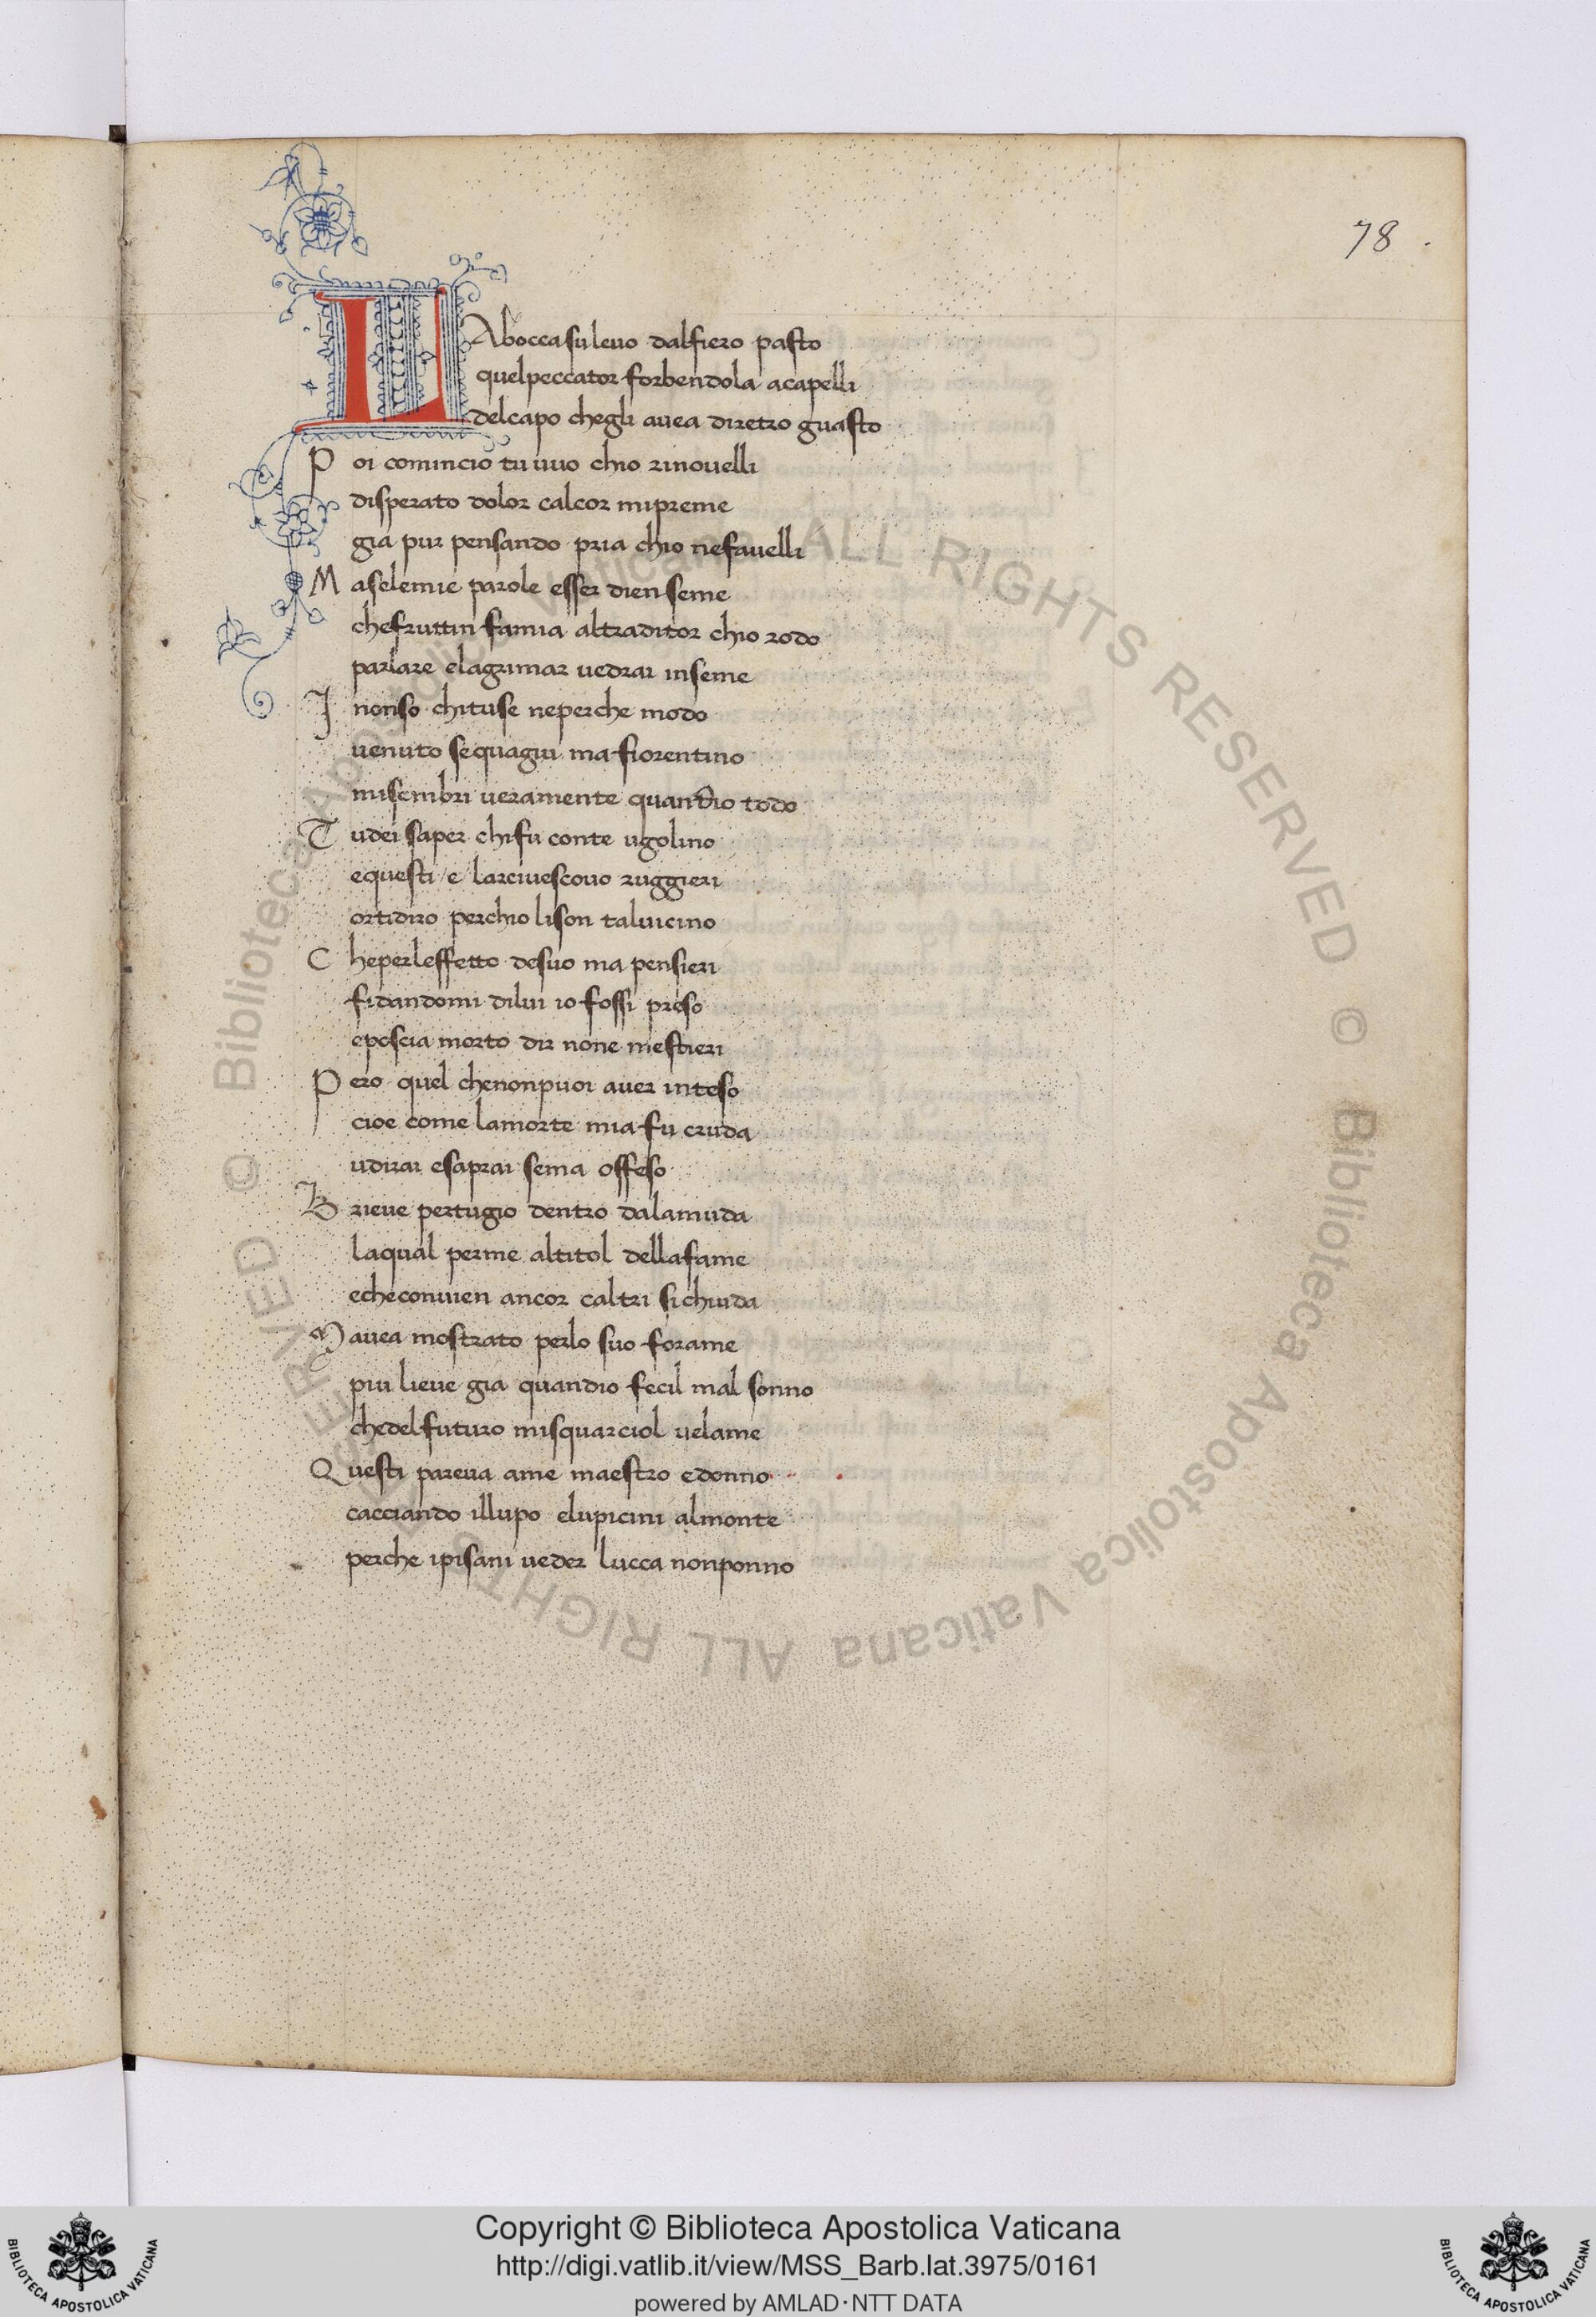 78 .
LAboccasuleuo dalfiero pasto
quelpeccator forbendola acapelli
delcapo chegli auea diretro guasto
Poi comincio tu uuo chio rinouelli
disperato dolor calcor mipreme
gia pur pensando pria chio nefauelli
Maselemie parole esser dien seme
chefruttin famia altraditor chio rodo
parlare elagrimar uedrai inseme
I nonso chituse neperche modo
uenuto sequagiu ma fiorentino
misembri ueramente quandio todo
Tudei saper chifu conte ugolino
equesti e larciuescouo ruggieri
ortidiro perchio lison taluicino
Cheperleffetto desuo ma pensieri
fidandomi dilui io fossi preso
eposcia morto dir none mestieri
Pero quel chenonpuoi auer inteso
cioe come lamorte mia fu cruda
udirai esaprai sema offeso
Brieue pertugio dentro dalamuda
laqual perme altitol dellafame
echeconuien ancor caltri sichiuda
Mauea mostrato perlo suo forame
piu lieue gia quandio fecil mal sonno
chedelfuturo misquarciol uelame
Questi pareua ame maestro edonno
cacciando illupo elupicini almonte
perche ipisani ueder lucca nonponno
© Biblioteca Apostolica Vaticana ALL RIGHTS RESERVED
© Biblioteca Apostolica Vaticana ALL RIGHTS RESERVED
BIBLIOTECA APOSTOLICA VATICANA
Copyright © Biblioteca Apostolica Vaticana
http://digi.vatlib.it/view/MSS_Barb.lat.3975/0161
powered by AMLAD·NTT DATA
BIBLIOTECA APOSTOLICA VATICANA